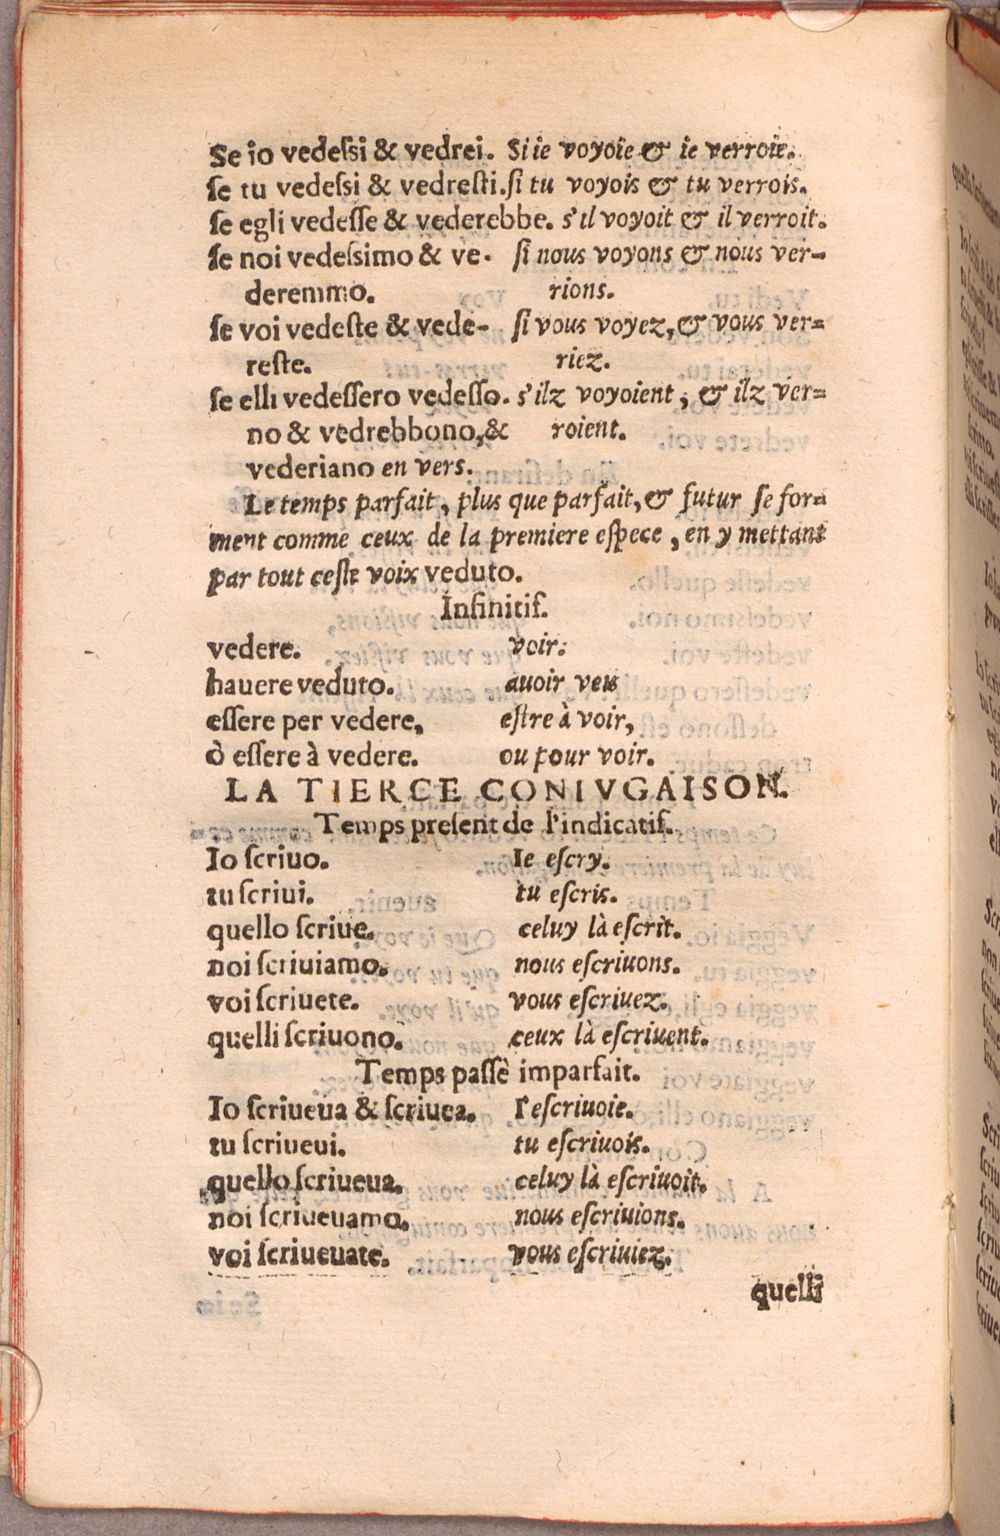 Se io vedeſsi & vedrei. Si ie voyoie & ie verroie.
ſe tu vedeſsi & vedreſti. ſi tu voyois & tu verrois.
ſe egli vedeſſe & vederebbe. s'il voyoit & il verroit.
ſe noi vedeſsimo & ve- ſi nous voyons & nous ver-
deremmo. rions.
ſe voi vedeſte & vede- ſi vous voyez, & vous ver-
reſte. riez.
ſe elli vedeſſero vedeſſo. s'ilz voyoient, & ilz ver-
no & vedrebbono, & roient.
vederiano en vers.
Le temps parfait, plus que parfait, & futur ſe for-
ment comme ceux de la premiere eſpece, en y mettant
par tout ceſte voix veduto.
Infinitif.
vedere. voir.
hauere veduto. auoir veu
eſſere per vedere, eſtre à voir,
ò eſſere à vedere. ou pour voir.
LA TIERCE CONIVGAISON.
Temps preſent de l'indicatif.
Io ſcriuo. Ie eſcry.
tu ſcriui. tu eſcris.
quello ſcriue. celuy là eſcrit.
noi ſcriuiamo. nous eſcriuons.
voi ſcriuete. vous eſcriuez.
quelli ſcriuono. ceux là eſcriuent.
Temps paſſè imparfait.
Io ſcriueua & ſcriuea. I'eſcriuoie.
tu ſcriueui. tu eſcriuois.
quello ſcriueua. celuy là eſcriuoit.
noi ſcriueuamo. nous eſcriuions.
voi ſcriueuate. vous eſcriuiez.
quelli